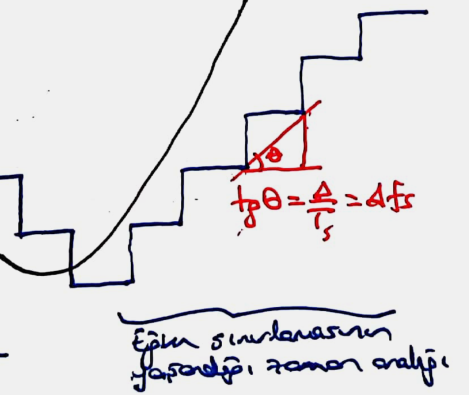 θ
tgθ = Δ/Ts = Δfs
Eğim sınırlamasının
yaşandığı zaman aralığı